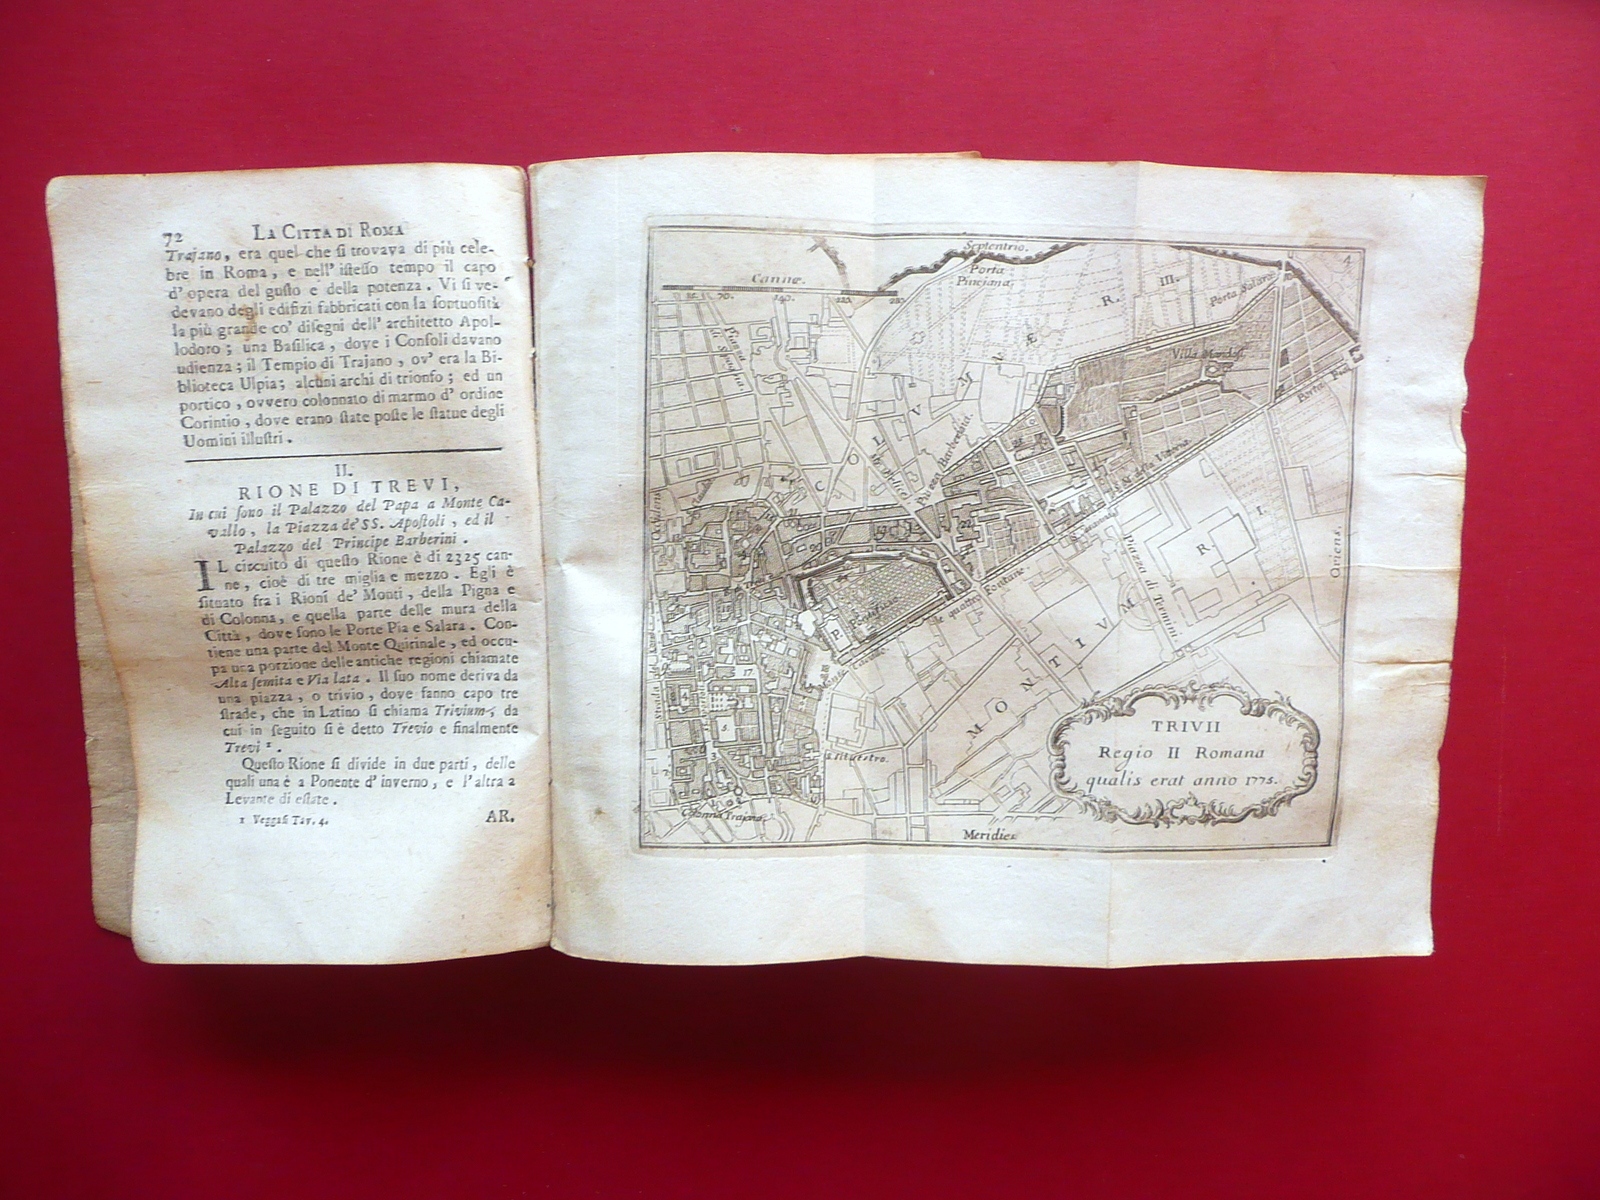 72 LA CITTÀ DI ROMA
Trajano, era quel che ſi trovava di più cele-
bre in Roma, e nell' iſteſſo tempo il capo
d' opera del guſto e della potenza. Vi ſi ve-
devano degli edifizi fabbricati con la ſontuoſità
la più grande co' diſegni dell' architetto Apol-
lodoro; una Baſilica, dove i Conſoli davano
udienza; il Tempio di Trajano, ov' era la Bi-
blioteca Ulpia; alcuni archi di trionfo; ed un
portico, ovvero colonnato di marmo d' ordine
Corintio, dove erano ſtate poſte le ſtatue degli
Uomini illuſtri.
II.
RIONE DI TREVI,
In cui ſono il Palazzo del Papa a Monte Ca-
vallo, la Piazza de' SS. Apoſtoli, ed il
Palazzo del Principe Barberini.
IL circuito di queſto Rione è di 2325 can-
ne, cioè di tre miglia e mezzo. Egli è
ſituato fra i Rioni de' Monti, della Pigna e
di Colonna, e quella parte delle mura della
Città, dove ſono le Porte Pia e Salara. Con-
tiene una parte del Monte Quirinale, ed occu-
pa una porzione delle antiche regioni chiamate
Alta ſemita e Via lata. Il ſuo nome deriva da
una piazza, o trivio, dove fanno capo tre
ſtrade, che in Latino ſi chiama Trivium, da
cui in ſeguito ſi è detto Trevio e finalmente
Trevi 1.
Queſto Rione ſi divide in due parti, delle
quali una è a Ponente d' inverno, e l' altra a
Levante di eſtate.
1 Veggaſi Tav. 4.
AR.
Septentrio.
4.
Cannæ.
Porta
Pinciana
R. III.
Porta Salara
Piazza di Spagna
Villa Mandosi
Porta Pia
COLUMNÆ
Piazza Barberina
le quattro Fontane
Piazza di Termini
R. I.
Oriens.
Occidens
P. Pontificio
Monte Cavallo
17
4
5
22
MONTIUM
S. Silvestro.
Colonna Trajana
Meridies
TRIVII
Regio II Romana
qualis erat anno 1775.